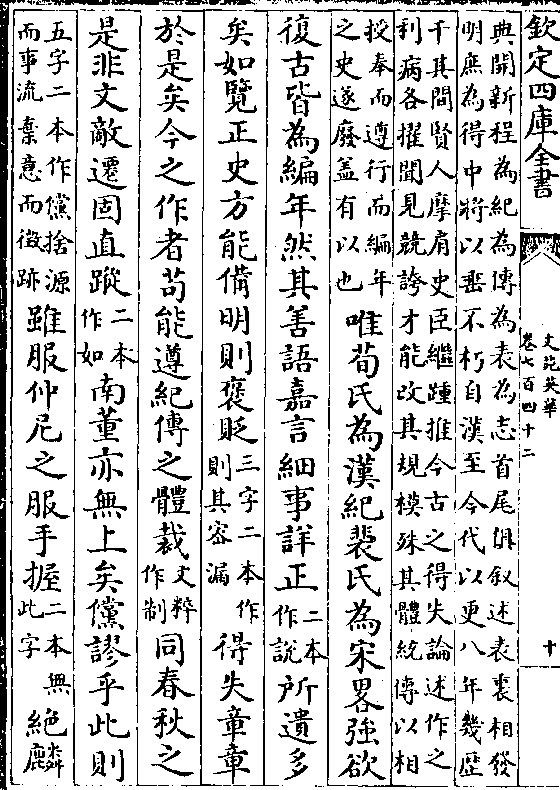 欽定四庫全書
文苑英華
卷七百四十二
十
典開新程為紀為傳為表為志首尾俱叙述表裏相發
明庶為得中將以垂不朽自漢至今代以更八年幾歴
千其間賢人摩肩史臣繼踵推今古之得失論述作之
利病各擢聞見競誇才能改其規模殊其體統傳以相
授奉而遵行而編年之史遂廢蓋有以也唯荀氏為漢紀裴氏為宋畧強欲
復古皆為編年然其善語嘉言細事詳正二本作說所遺多
矣如覽正史方能備明則褒貶三字二本作則其密漏得失章章
於是矣今之作者苟能遵紀傳之體裁文粹作制同春秋之
是非文敵遷固直蹤二本作如南董亦無上矣儻謬乎此則
五字二本作儻捨源而事流棄意而徵跡雖服仲尼之服手握二本無此字絶麟